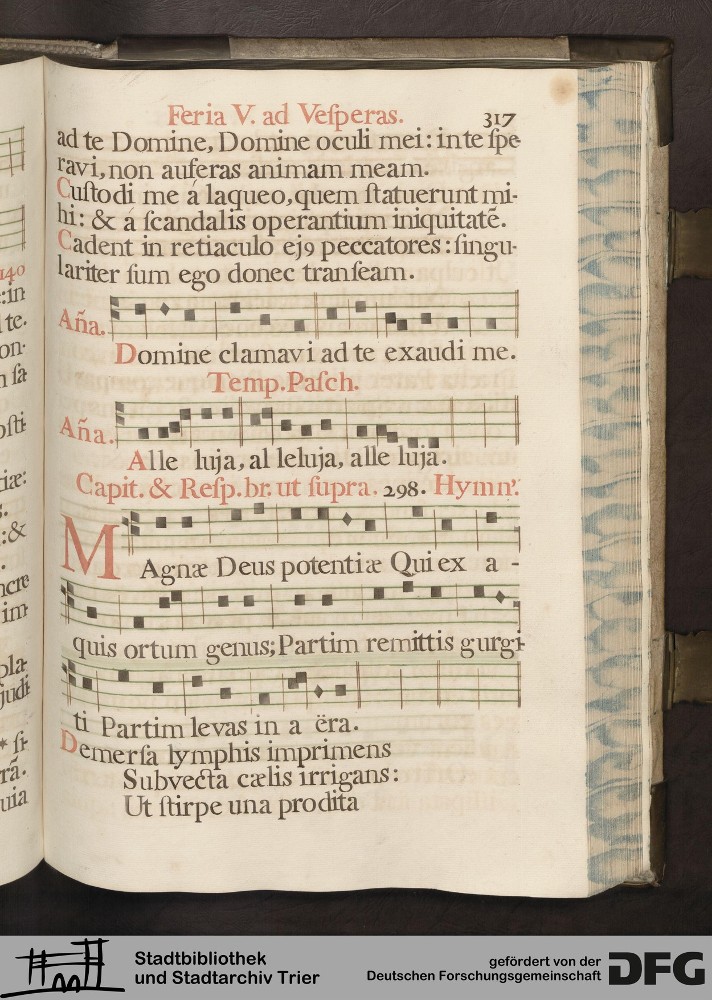 Feria V. ad Veſperas. 317
ad te Domine, Domine oculi mei: in te ſpe
ravi, non auferas animam meam.
Cuſtodi me á laqueo, quem ſtatuerunt mi-
hi: & á ſcandalis operantium iniquitatē.
Cadent in retiaculo ej9 peccatores: ſingu-
lariter ſum ego donec tranſeam.
Aña.
Domine clamavi ad te exaudi me.
Temp. Paſch.
Aña.
Alle luja, al leluja, alle luja.
Capit. & Reſp. br. ut ſupra. 298. Hymn'.
MAgnæ Deus potentiæ Qui ex a -
quis ortum genus; Partim remittis gurgi-
ti Partim levas in a ëra.
Demerſa lymphis imprimens
Subvecta cælis irrigans:
Ut ſtirpe una prodita
140
:in
te.
on-
:&
im-
uia
Stadtbibliothek
und Stadtarchiv Trier
gefördert von der
Deutschen Forschungsgemeinschaft
DFG